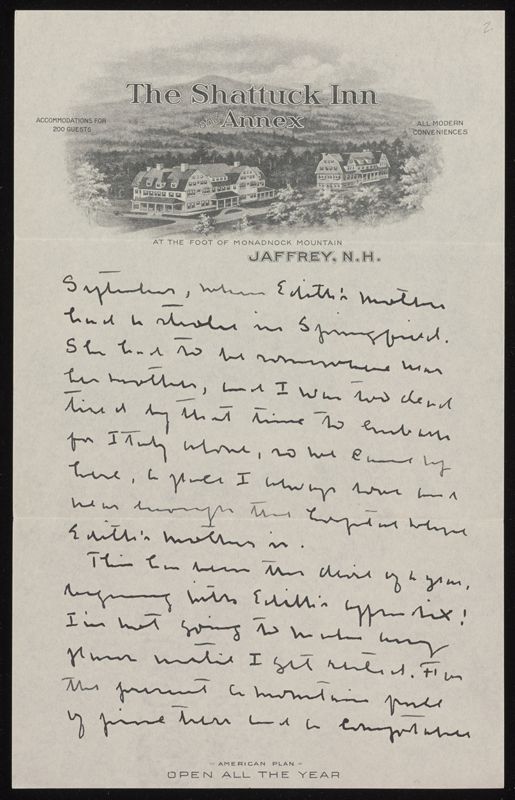 2
The Shattuck Inn
and Annex
ACCOMMODATIONS FOR
200 GUESTS
ALL MODERN
CONVENIENCES
AT THE FOOT OF MONADNOCK MOUNTAIN
JAFFREY, N.H.
September, when Edith's mother
had a stroke in Springfield.
She had to be somewhere near
her mother, and I was too dead
tired by that time to embark
for Italy alone, so we came up
here, a place I always love and
near enough the hospital where
Edith's mother is.
This has been the devil of a year,
beginning with Edith's appendix!
I'm not going to make any
plans until I get rested. For
the present a mountain full
of pine trees and a comfortable
- AMERICAN PLAN -
OPEN ALL THE YEAR